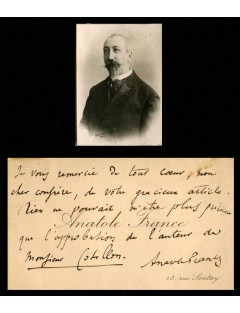 Je vous remercie de tout cœur, mon
cher confrère, de votre gracieux article.
Rien ne pouvait m'être plus précieux
Anatole France
que l'approbation de l'auteur de
Monsieur Cotillon.
Anatole France
15, rue